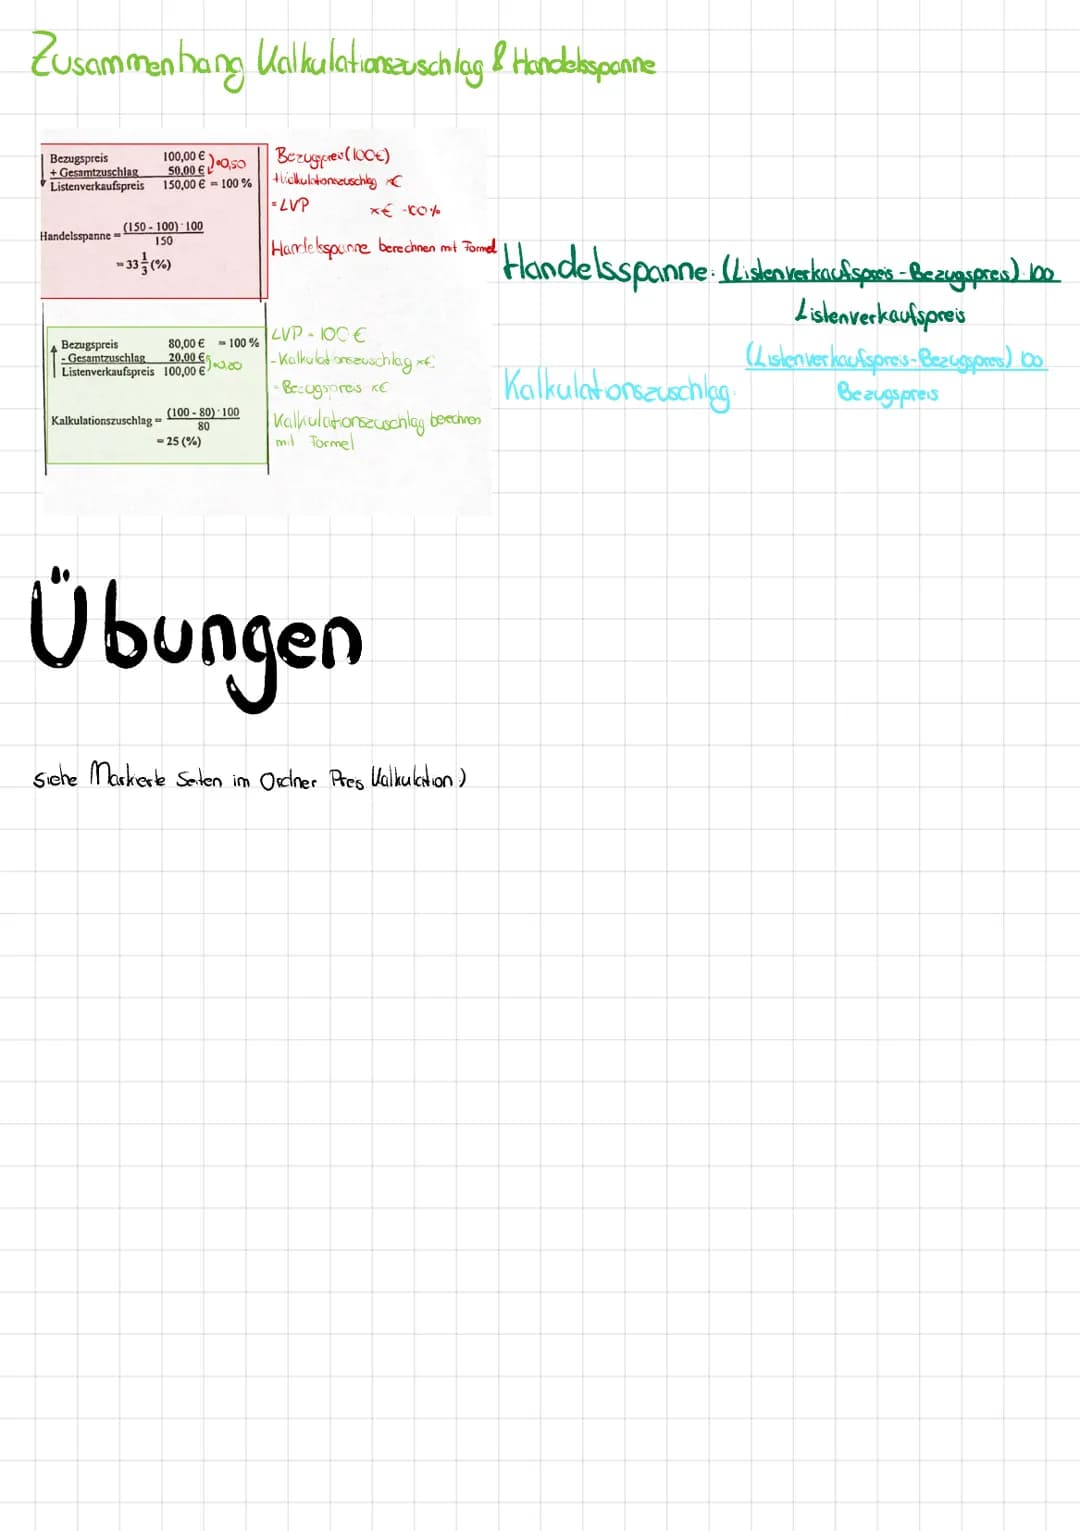 Zusammenhang Kalkulationszuschlag & Handelsspanne
Bezugspreis 100,00 €
+ Gesamtzuschlag 50,00 € ·0,50
Listenverkaufspreis 150,00 € = 100 %
Handelsspanne = (150 - 100) · 100
150
= 33 1/3 (%)
Bezugspreis (100€)
+ Kalkulationszuschlag x€
= LVP x€ - 100%
Handelsspanne berechnen mit Formel
Handelsspanne: (Listenverkaufspreis - Bezugspreis) · 100
Listenverkaufspreis
Bezugspreis 80,00 € = 100 %
- Gesamtzuschlag 20,00 € ·0,20
Listenverkaufspreis 100,00 €
Kalkulationszuschlag = (100 - 80) · 100
80
= 25 (%)
LVP - 100 €
- Kalkulationszuschlag x€
= Bezugspreis x€
Kalkulationszuschlag berechnen
mit Formel
Kalkulationszuschlag: (Listenverkaufspreis - Bezugspreis) · 100
Bezugspreis
Übungen
siehe Markierte Seiten im Ordner Preis Kalkulation :)